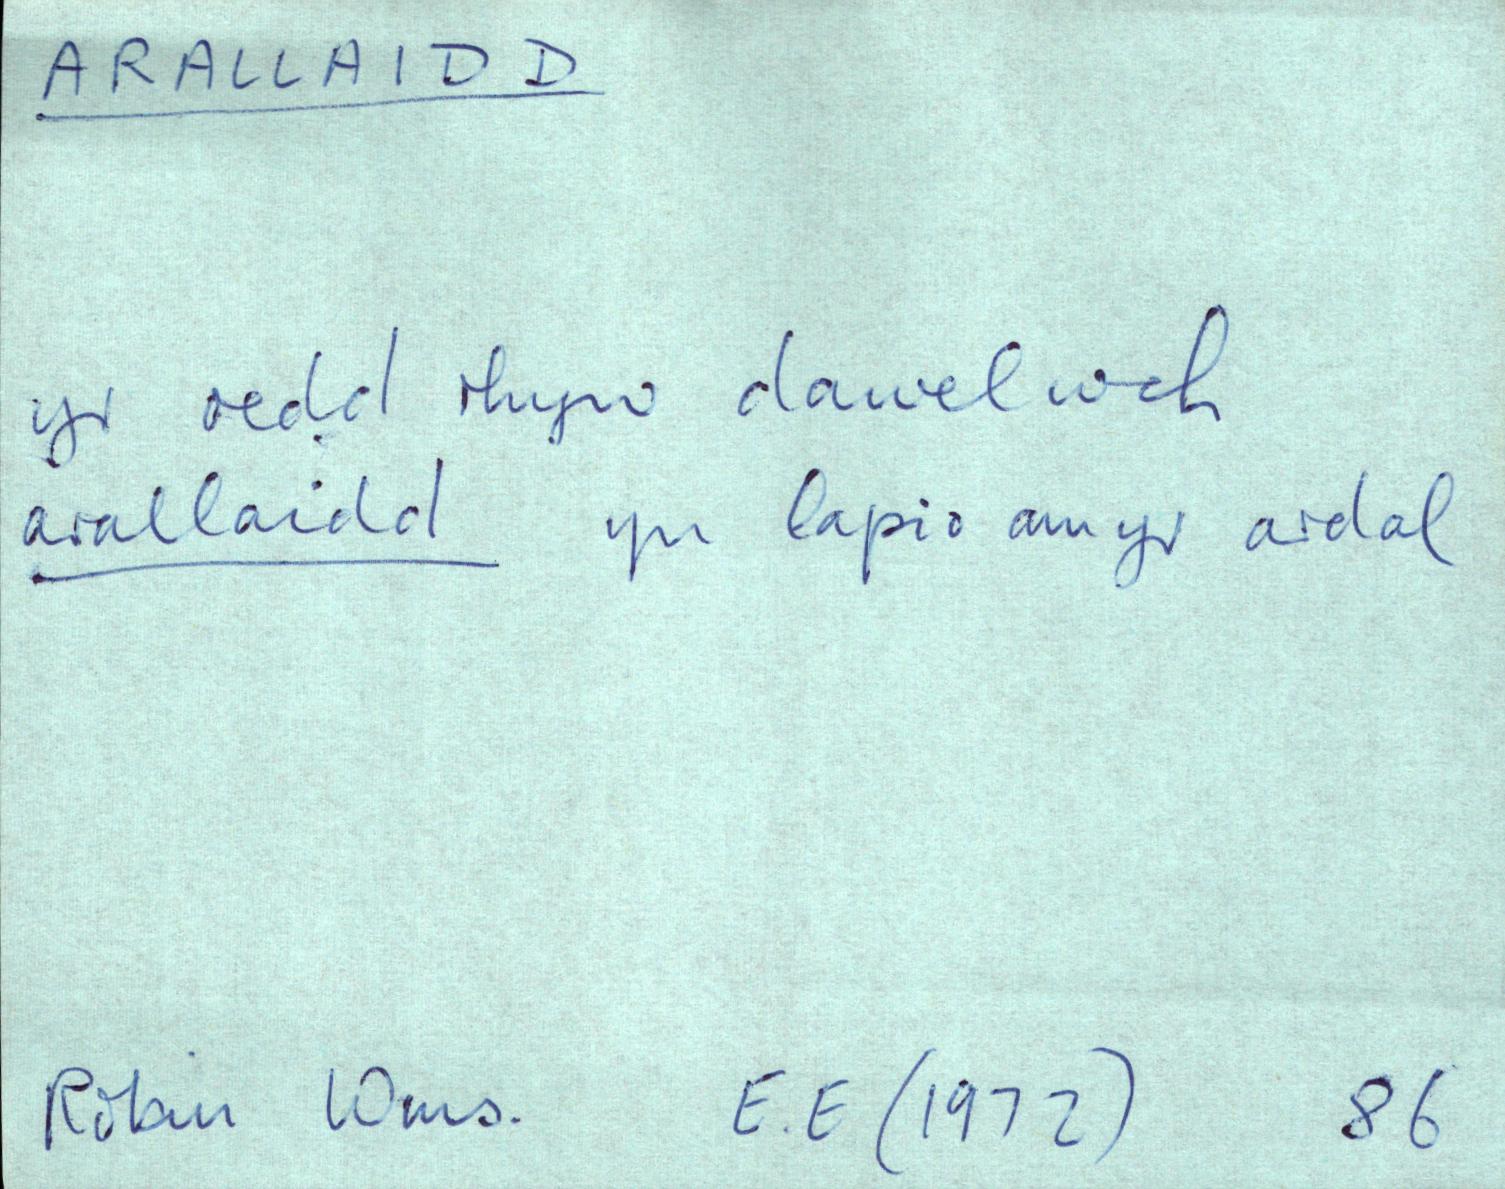 ARALLAIDD
yr oedd rhyw dawelwch
arallaidd yn lapio am yr ardal
Robin Wms. E.E (1972) 86